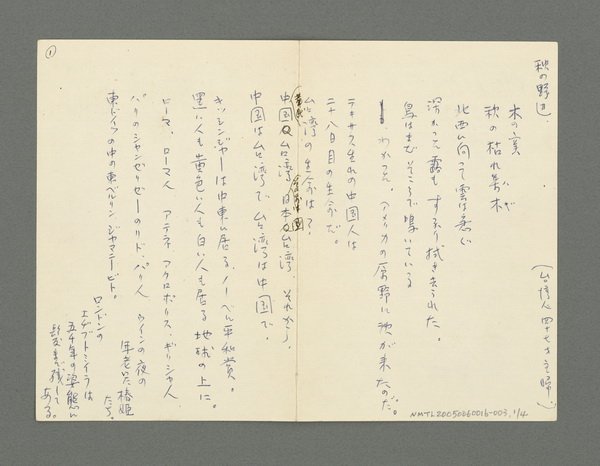 秋の野辺、
(台湾人 四十七才 主婦.)
木の実
秋の枯れ葉
北西に向って雲は急ぐ
深かった霧も すっかり拭き去られた。
鳥はまだそこで鳴いている
わかった、アメリカの原野に秋が来たのだ。
テキサス生れの中国人は
二十八日目の生命だ。
台湾の生命は?
中国の台湾、日本の台湾、それから、
中国は台湾で、台湾は中国で、
キッシンジャーは中東に居る、ノーベル平和賞。
黒い人も黄色い人も白い人も居る 地球の上に。
ローマ、ローマ人 アテネ アクロポリス、ギリシャ人
パリのシャンゼリゼーのリド、パリ人 ウインの夜の
年老いた椿姫たち。
東ドイツの中の東ベルリン ジャマニーピト。
ロンドンの
エジプトミイラは
五千年の姿態に
髪まで残して
ある。
①
NMTL20050060016-003, 1/4